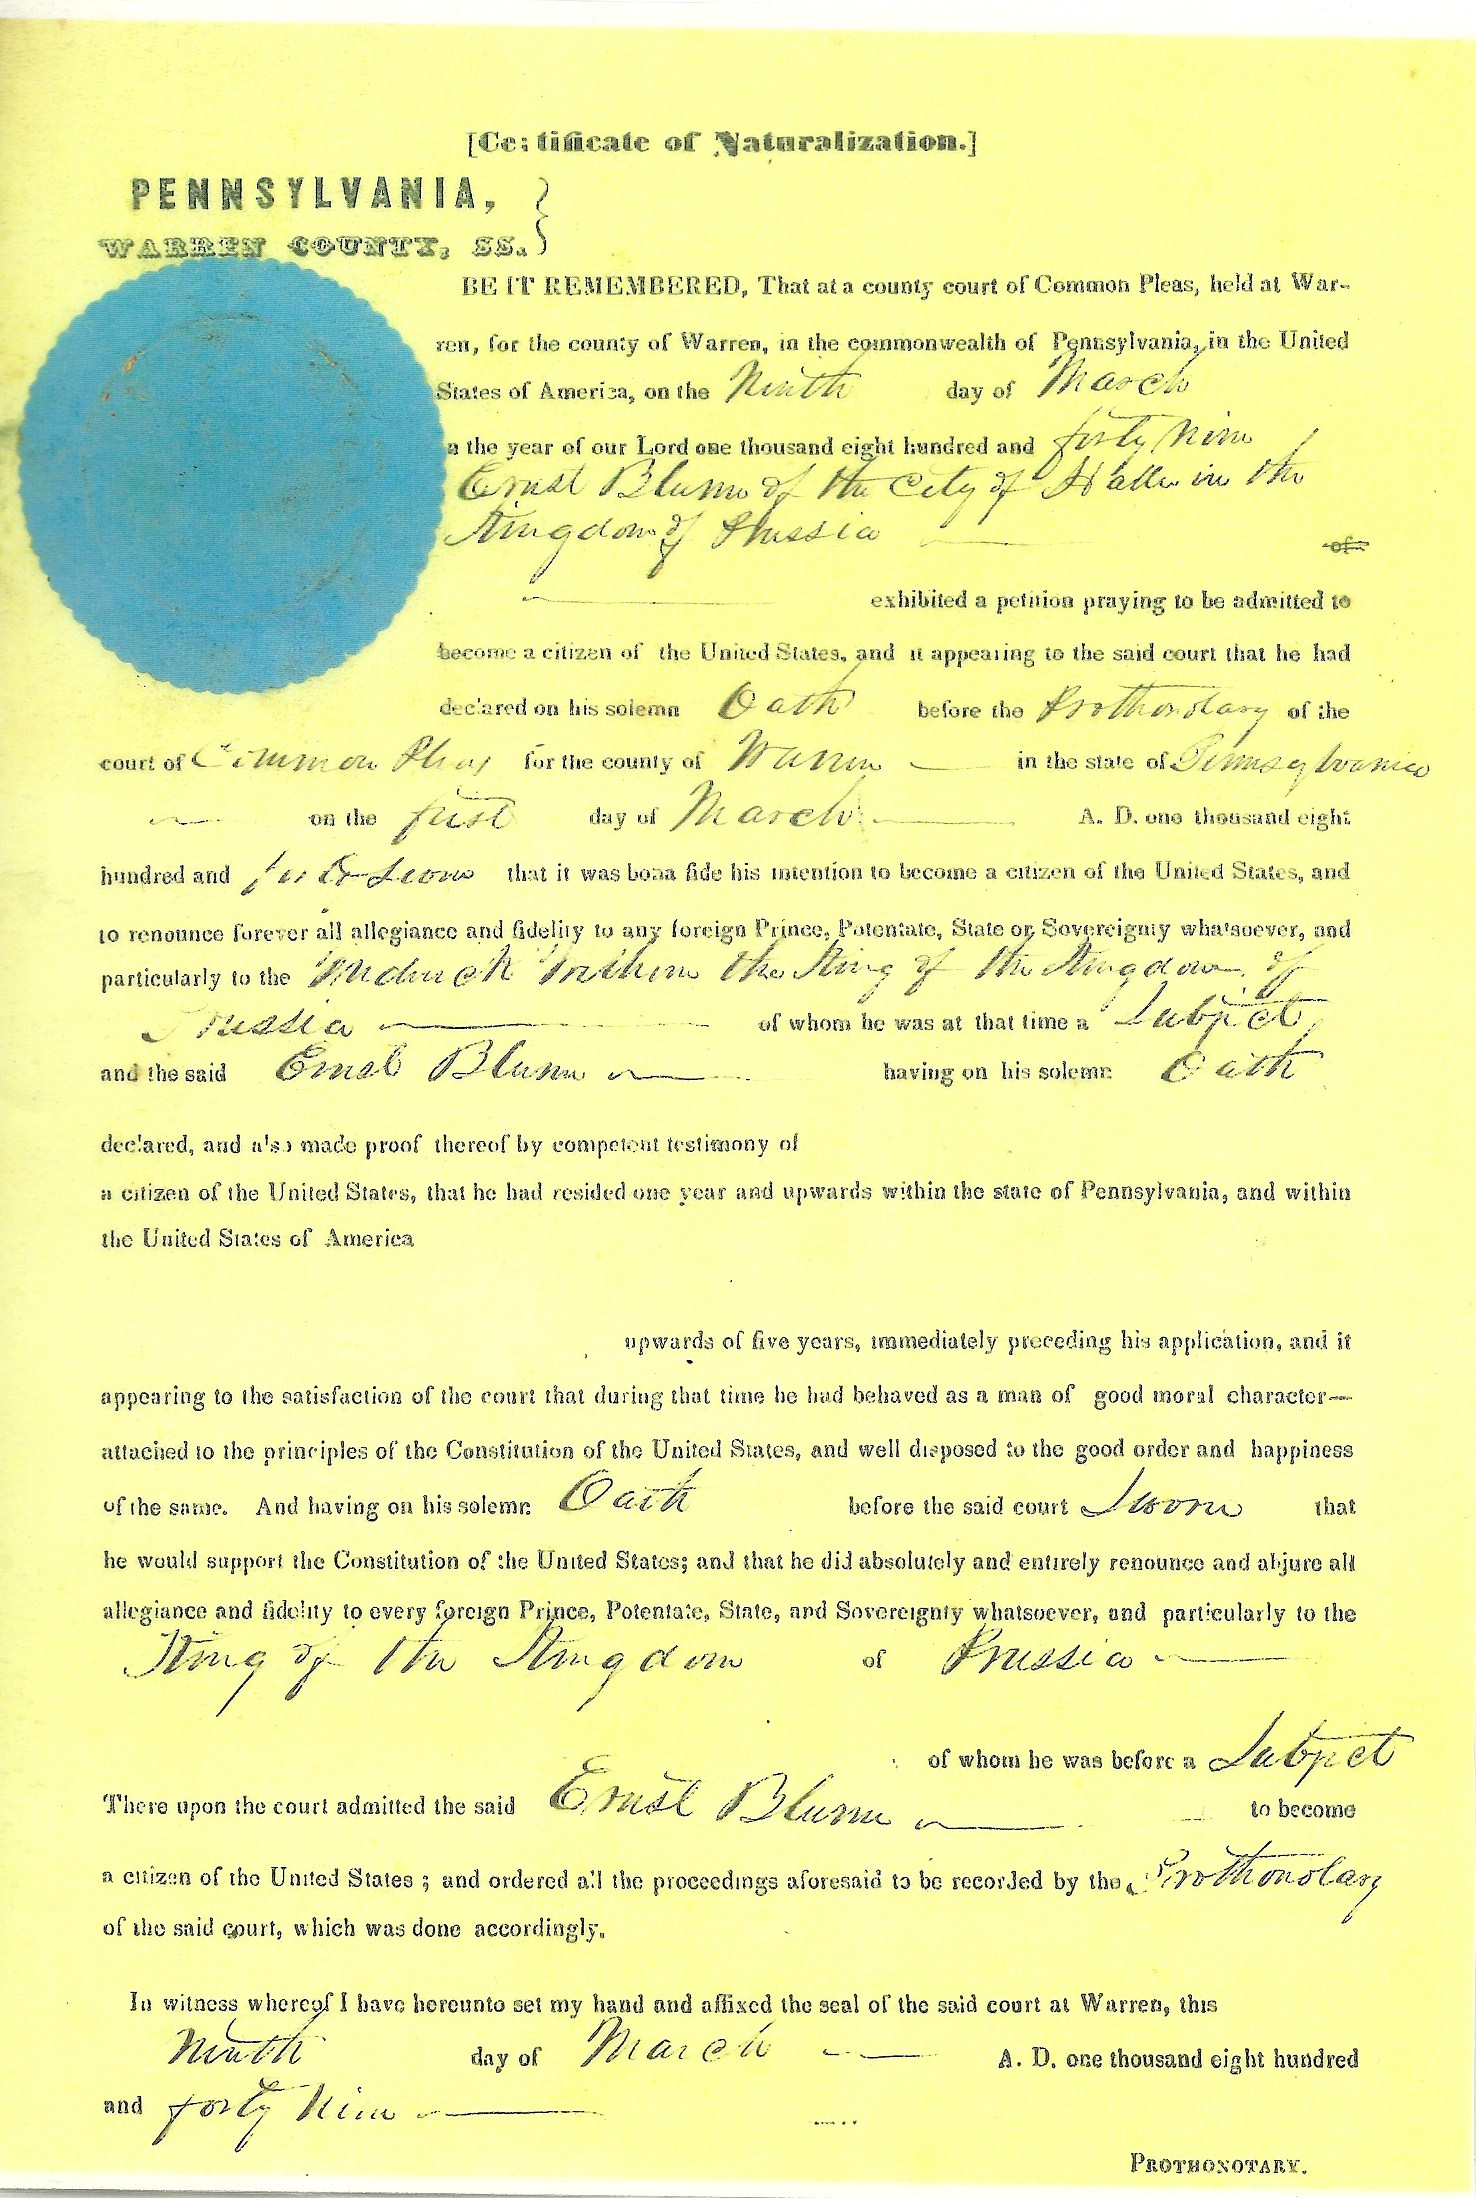 [Certificate of Naturalization.]
PENNSYLVANIA,
WARREN COUNTY, SS.
BE IT REMEMBERED, That at a county court of Common Pleas, held at War-
ren, for the county of Warren, in the commonwealth of Pennsylvania, in the United
States of America, on the Ninth day of March
n the year of our Lord one thousand eight hundred and forty Nine
Ernst Blume of the City of Halle in the
Kingdom of Prussia
of
exhibited a petition praying to be admitted to
become a citizen of the United States, and it appearing to the said court that he had
declared on his solemn Oath before the Prothonotary of the
court of Common Pleas for the county of Warren in the state of Pennsylvania
on the first day of March A. D. one thousand eight
hundred and that it was bona fide his intention to become a citizen of the United States, and
to renounce forever all allegiance and fidelity to any foreign Prince, Potentate, State or Sovereignty whatsoever, and
particularly to the the King of the Kingdom of
Prussia of whom he was at that time a Subject
and the said Ernst Blume having on his solemn Oath
declared, and also made proof thereof by competent testimony of
a citizen of the United States, that he had resided one year and upwards within the state of Pennsylvania, and within
the United States of America
upwards of five years, immediately preceding his application, and it
appearing to the satisfaction of the court that during that time he had behaved as a man of good moral character—
attached to the principles of the Constitution of the United States, and well disposed to the good order and happiness
of the same. And having on his solemn Oath before the said court Sworn that
he would support the Constitution of the United States; and that he did absolutely and entirely renounce and abjure all
allegiance and fidelity to every foreign Prince, Potentate, State, and Sovereignty whatsoever, and particularly to the
King of the Kingdom of Prussia
of whom he was before a Subject
There upon the court admitted the said Ernst Blume to become
a citizen of the United States ; and ordered all the proceedings aforesaid to be recorded by the Prothonotary
of the said court, which was done accordingly.
In witness whereof I have hereunto set my hand and affixed the seal of the said court at Warren, this
Ninth day of March A. D. one thousand eight hundred
and forty Nine
PROTHONOTARY.